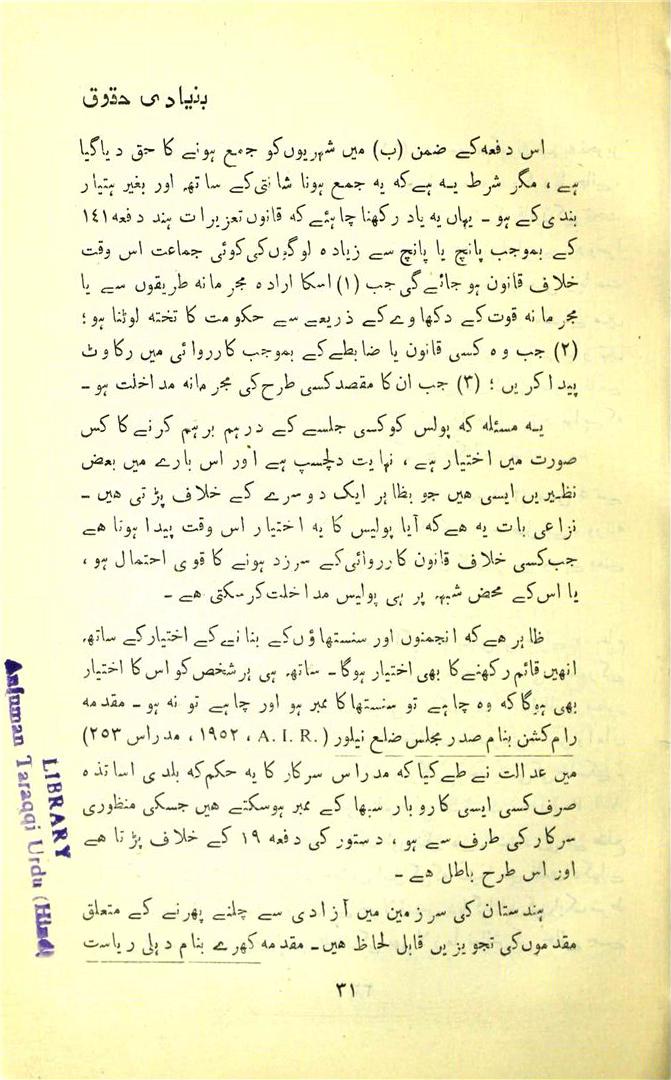 بنیادی حقوق
اس دفعہ کے ضمن (ب) میں شہریوں کو جمع ہونے کا حق دیا گیا
ہے ، مگر شرط یہ ہے کہ یہ جمع ہونا شانتی کے ساتھ اور بغیر ہتیار
بندی کے ہو ۔ یہاں یہ یاد رکھنا چاہئے کہ قانون تعزیرات ہند دفعہ ۱۴۱
کے بموجب پانچ یا پانچ سے زیادہ لوگوں کی کوئی جماعت اس وقت
خلاف قانون ہو جائے گی جب (۱) اسکا ارادہ مجرمانہ طریقوں سے یا
مجرمانہ قوت کے دکھاوے کے ذریعے سے حکومت کا تختہ لوٹنا ہو ؛
(۲) جب وہ کسی قانون یا ضابطے کے بموجب کارروائی میں رکاوٹ
پیدا کریں ؛ (۳) جب ان کا مقصد کسی طرح کی مجرمانہ مداخلت ہو ۔
یہ مسئلہ کہ پولس کو کسی جلسے کے درہم برہم کرنے کا کس
صورت میں اختیار ہے ، نہایت دلچسپ ہے اور اس بارے میں بعض
نظیریں ایسی ہیں جو بظاہر ایک دوسرے کے خلاف پڑتی ہیں ۔
نزاعی بات یہ ہے کہ آیا پولیس کا یہ اختیار اس وقت پیدا ہوتا ہے
جب کسی خلاف قانون کارروائی کے سرزد ہونے کا قوی احتمال ہو ،
یا اس کے محض شبہہ پر ہی پولیس مداخلت کرسکتی ہے ۔
ظاہر ہے کہ انجمنوں اور سنستھاؤں کے بنانے کے اختیار کے ساتھ
انہیں قائم رکھنے کا بھی اختیار ہوگا ۔ ساتھ ہی ہر شخص کو اس کا اختیار
بھی ہوگا کہ وہ چاہے تو سنستھا کا ممبر ہو اور چاہے تو نہ ہو ۔ مقدمہ
رام کشن بنام صدر مجلس ضلع نیلور (A. I. R. ، ۱۹۵۲ ، مدراس ۲۵۳)
میں عدالت نے طے کیا کہ مدراس سرکار کا یہ حکم کہ بلدی اساتذہ
صرف کسی ایسی کاروبار سبھا کے ممبر ہوسکتے ہیں جسکی منظوری
سرکار کی طرف سے ہو ، دستور کی دفعہ ۱۹ کے خلاف پڑتا ہے
اور اس طرح باطل ہے ۔
ہندستان کی سرزمین میں آزادی سے چلنے پھرنے کے متعلق
مقدموں کی تجویزیں قابل لحاظ ہیں ۔ مقدمہ کھرے بنام دہلی ریاست
۳۱
LIBRARY
Anjuman Taraqqi Urdu (Hind)